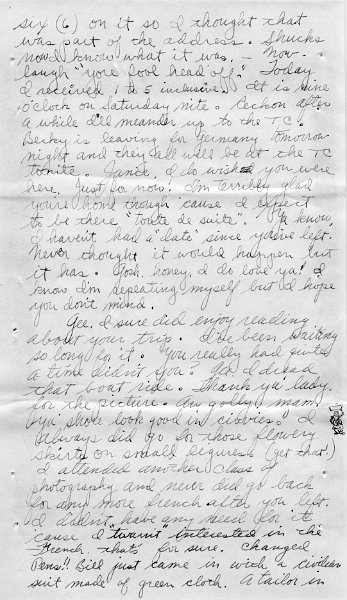 six (6) on it so I thought that
was part of the address. Shucks
now I know what it was. – Now
laugh "your fool head off." Today
I received 1 to 5 inclusive. It is nine
o'clock on Saturday nite. Reckon after
a while I'll meander up to the TC.
Becky is leaving for Germany tomorrow
night and they all will be at the TC
tonite. Janie, I do wish you were
here. Just for now! I'm terribly glad
you're home though 'cause I expect
to be there "toute de suite". Ya know,
I haven't had a "date" since you've left.
Never thought it would happen but
it has. Gosh, honey, I do love ya! I
know I'm repeating myself but I hope
you don't mind.
Gee, I sure did enjoy reading
about your trip. I've been waiting
so long for it. You really had quite
a time didn't you? Gad I dread
that boat ride. Thank ya lady
for the picture. An golly mam
ya shore look good in "civvies". I
always did go for those flowery
skirts on small figures (get that!)
I attended another class of
photography and never did go back
for any more french after you left.
I didn't have any need for it
'cause I twarn't interested in the
French that's for sure. Changed
pens!! Bill just came in with a civilian
suit made of green cloth. A tailor in